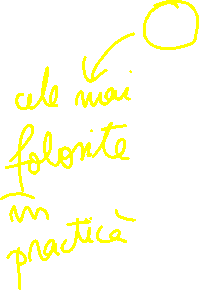 cele mai
folosite
în
practică